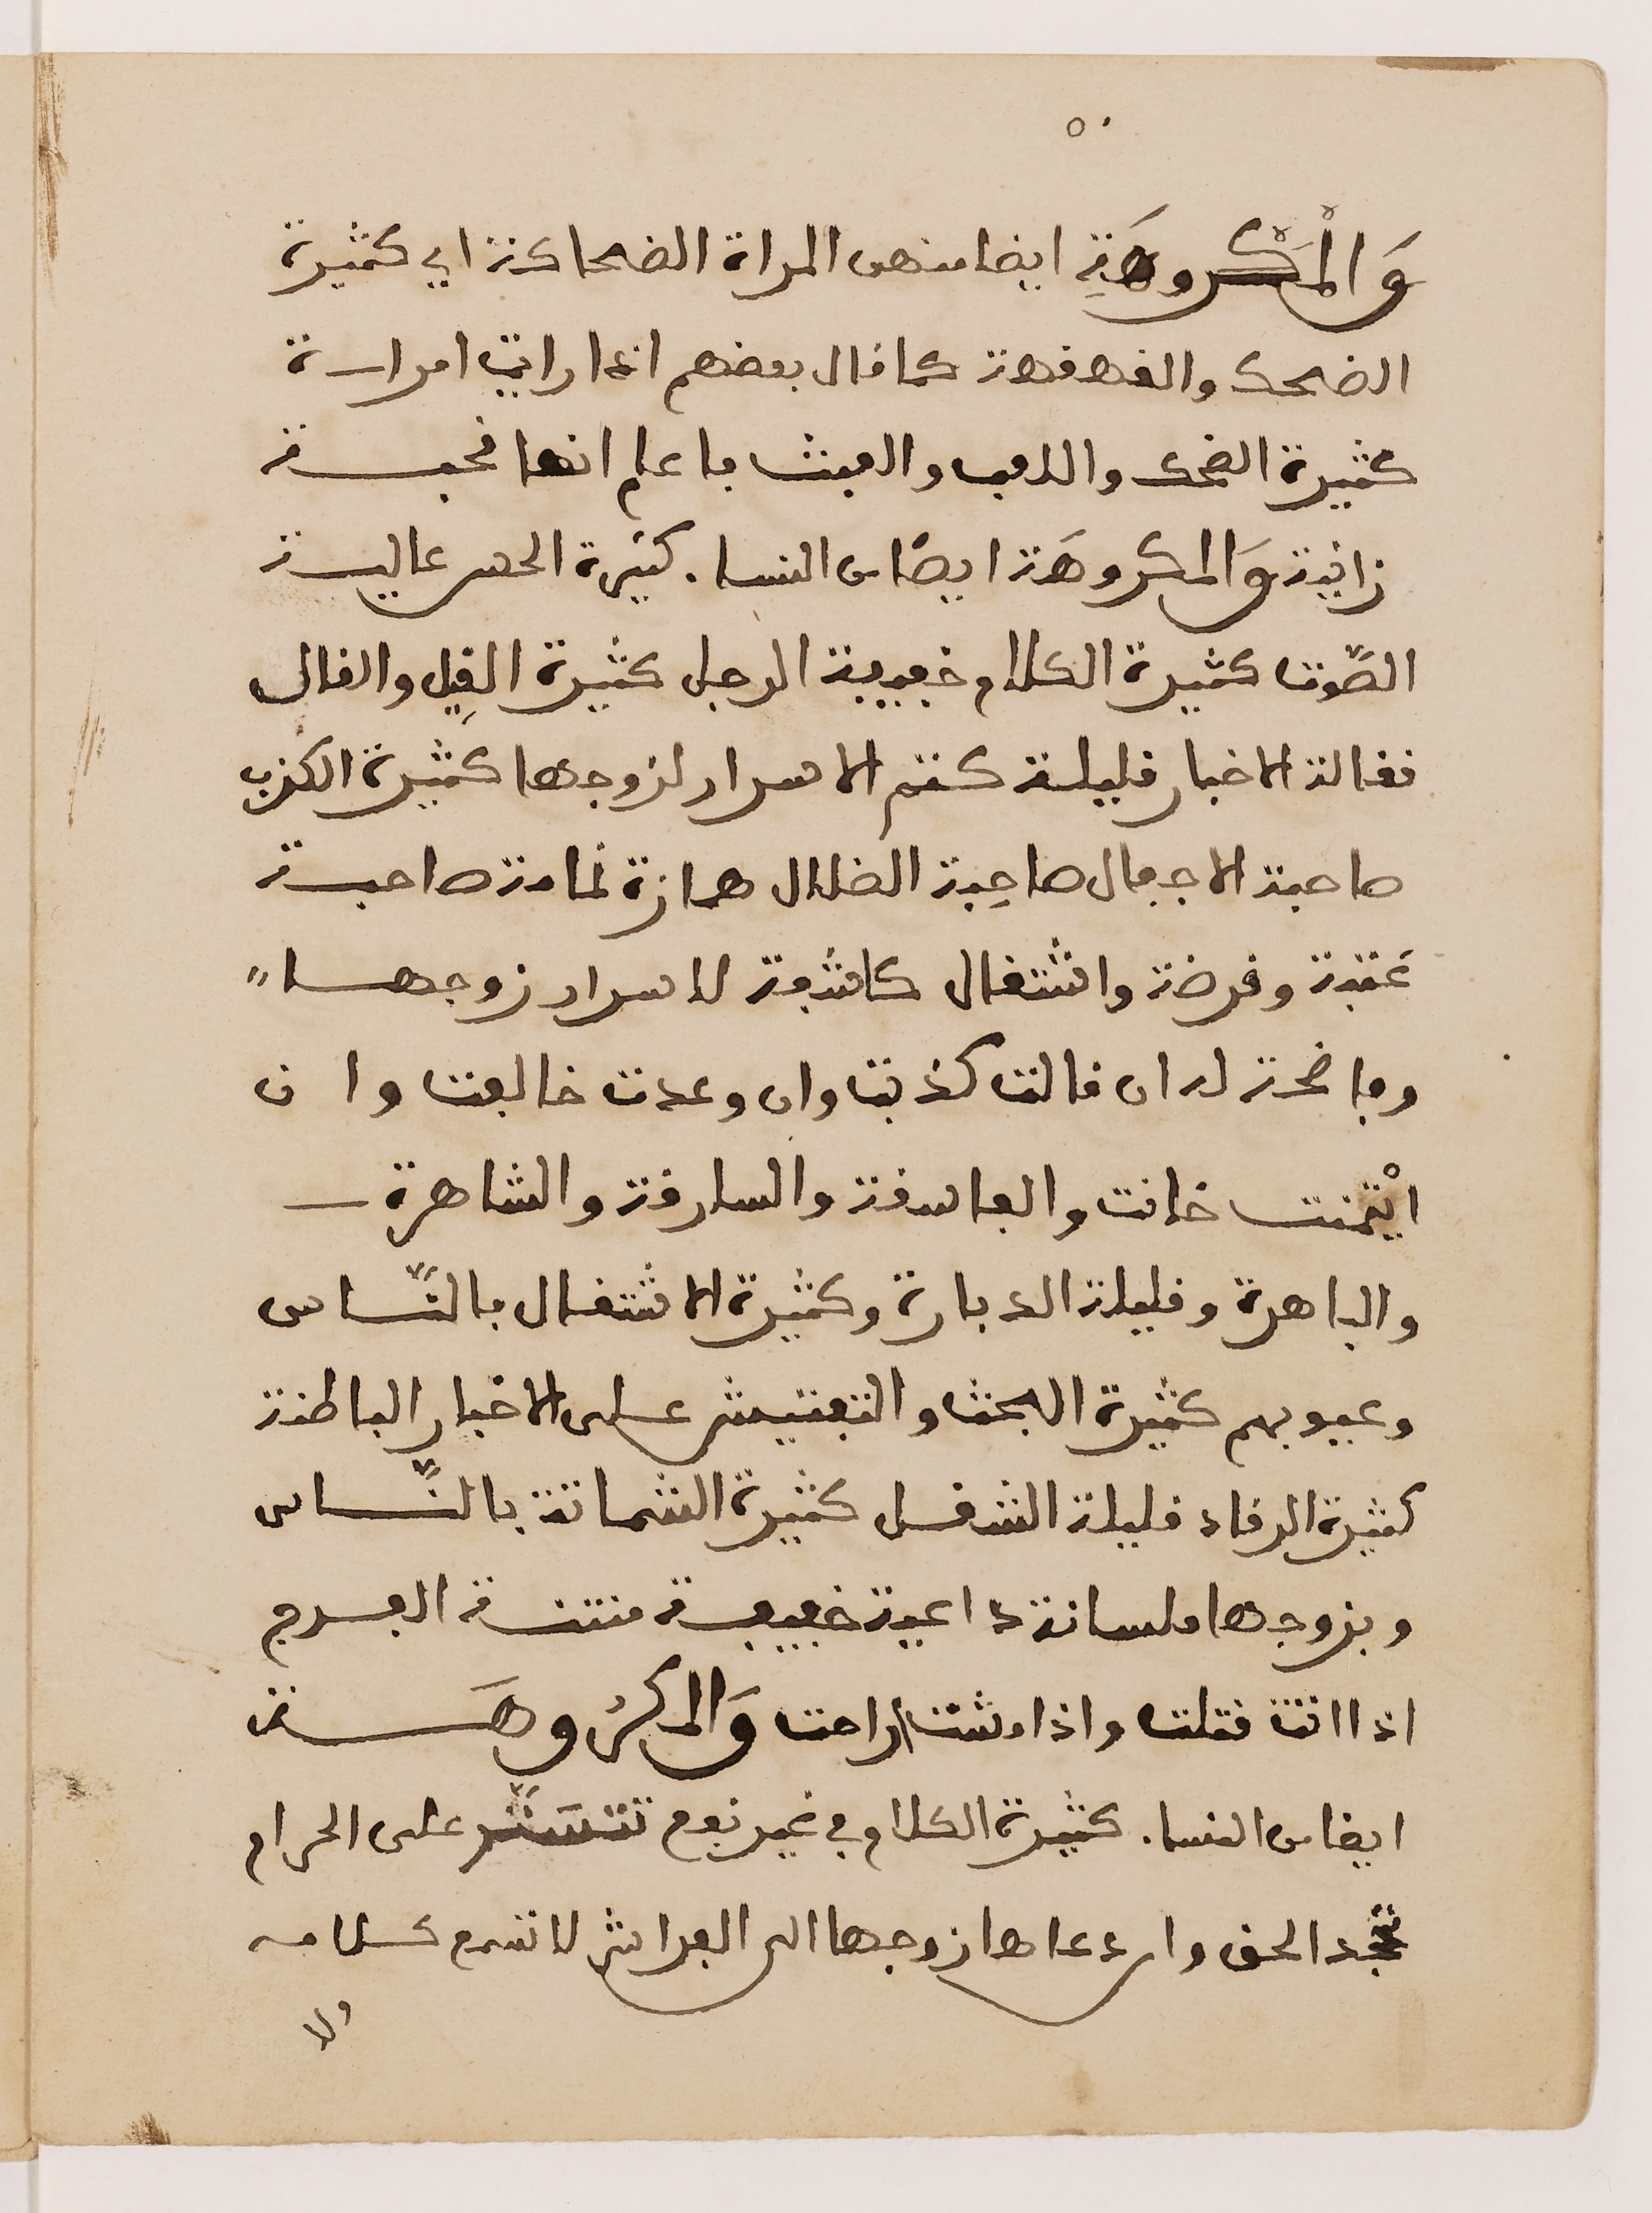 ٥٠
وَالْمَكْروهَةِ ايضا منهن المراة الضحاكة اي كثيرة
الضحك والقهقهة كما قال بعضهم اذا رايت امراة
كثيرة الضحك واللعب والعبث فاعلم انها قحبة
زانية وَالمكروهَة ايضًا من النساء كثيرة الحس عالية
الصَّوت كثيرة الكلام خفيفة الرجل كثيرة القِيل والقال
نقالة الاخبار قليلة كتم الاسرار لزوجها كثيرة الكذب
صاحبة الا جفال صاحِبة الضلال همازة نمامة صاحبة
عَتبة وفرضة واشتغال كاشفة لاسرار زوجها
وفاضحة له ان قالت كذبت وان وعدت خالفت وان
ايْتمنت خانت والفاسقة والسارقة والشاهرة
والباهرة وقليلة الدبارة وكثيرة الاشتغال بالنَّاس
وعيوبهم كثيرة البحث والتفتيش على الاخبار الباطنة
كثيرة الرقاد قليلة الشغل كثيرة الشماتة بالنَّاس
وبزوجها ملسانة داعية خفيفة منتنة الفرج
اذا اتت قتلت واذا مشت اراحت وَالمكرُوهَة
ايضا من النساء كثيرة الكلام في غير نفع تتسَتَّر على الحرام
تجحد الحق وان دعاها زوجها الى الفراش لا تسمع كلامه
ولا